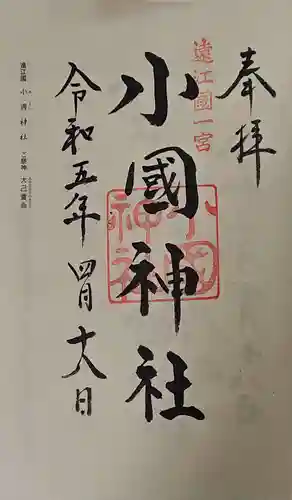 奉拝
遠江國一宮
小國神社
小國神社
令和五年四月十六日
遠江國 小國神社 ご祭神 大己貴命